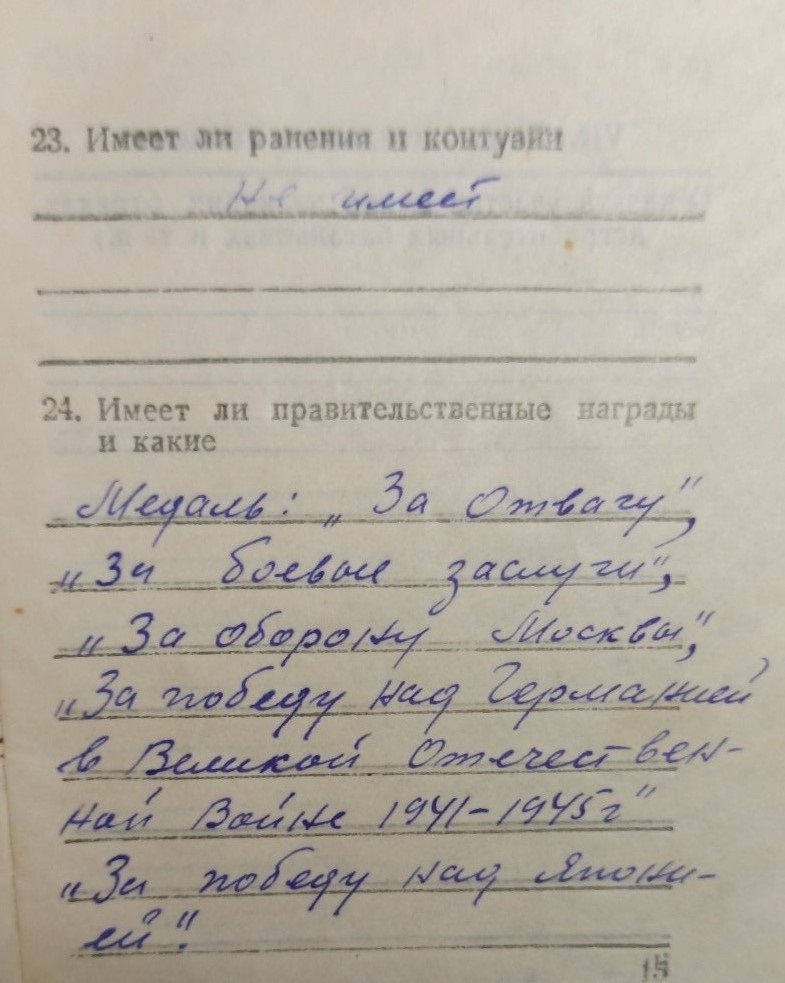 23. Имеет ли ранения и контузии
Не имеет
24. Имеет ли правительственные награды
и какие
Медаль: „За Отвагу",
„За боевые заслуги",
„За оборону Москвы",
„За победу над Германией
в Великой Отечествен-
ной Войне 1941-1945г"
„За победу над Япони-
ей".
15